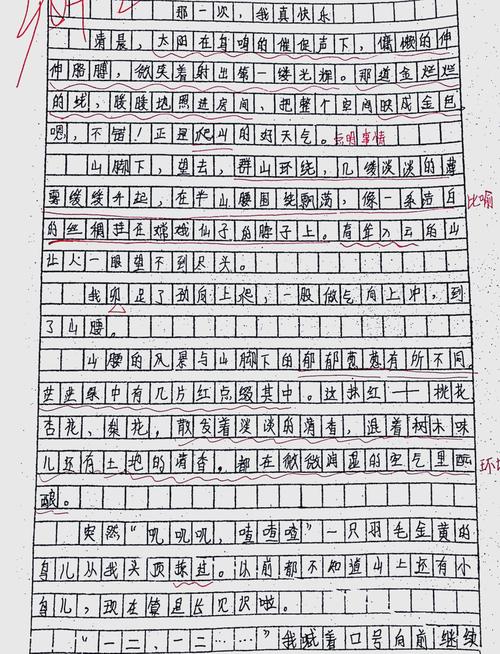 那一次,我真快乐
清晨,太阳在鸟鸣的催促声下,慵懒的伸
伸胳膊,微笑着射出第一缕光辉。那道金烂烂
的线,暖暖地照进房间、把整个空间映成金色
嗯,不错!正是爬山的好天气。点明事情
山脚下,望去,群山环绕,几缕淡淡的薄
雾缓缓升起,在半山腰围绕飘荡,像一条洁白 比喻
的丝绸挂在嫦娥仙子的脖子上。高耸入云的山
让人一眼望不到尽头。
我卯足了劲向上爬,一股做气向上冲,到
了山腰。
山腰的风景与山脚下的郁郁葱葱有所不同
茫茫绿中有几片红点缀其中。这抹红——桃花
杏花、梨花,散发着淡淡的清香,混着树木味
儿还有土地的清香。都在微微润湿的空气里酝 环境
酿。
突然“叽叽叽,喳喳喳”一只羽毛金黄的
鸟儿从我头顶掠过。以前都不知道山上还有小
鸟儿,现在算是长见识啦。
“一二、一二……”我喊着口号向前继续